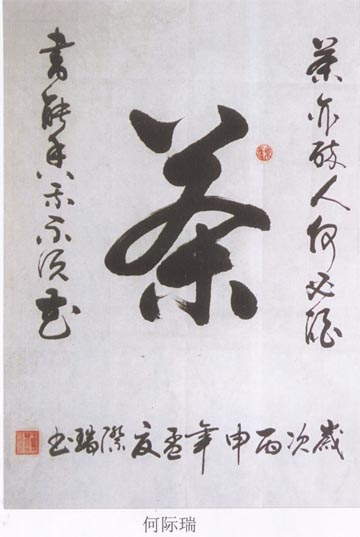 茶亦醉人何必酒
茶
書能香我不须花
歲次丙申年孟夏際瑞书
何际瑞